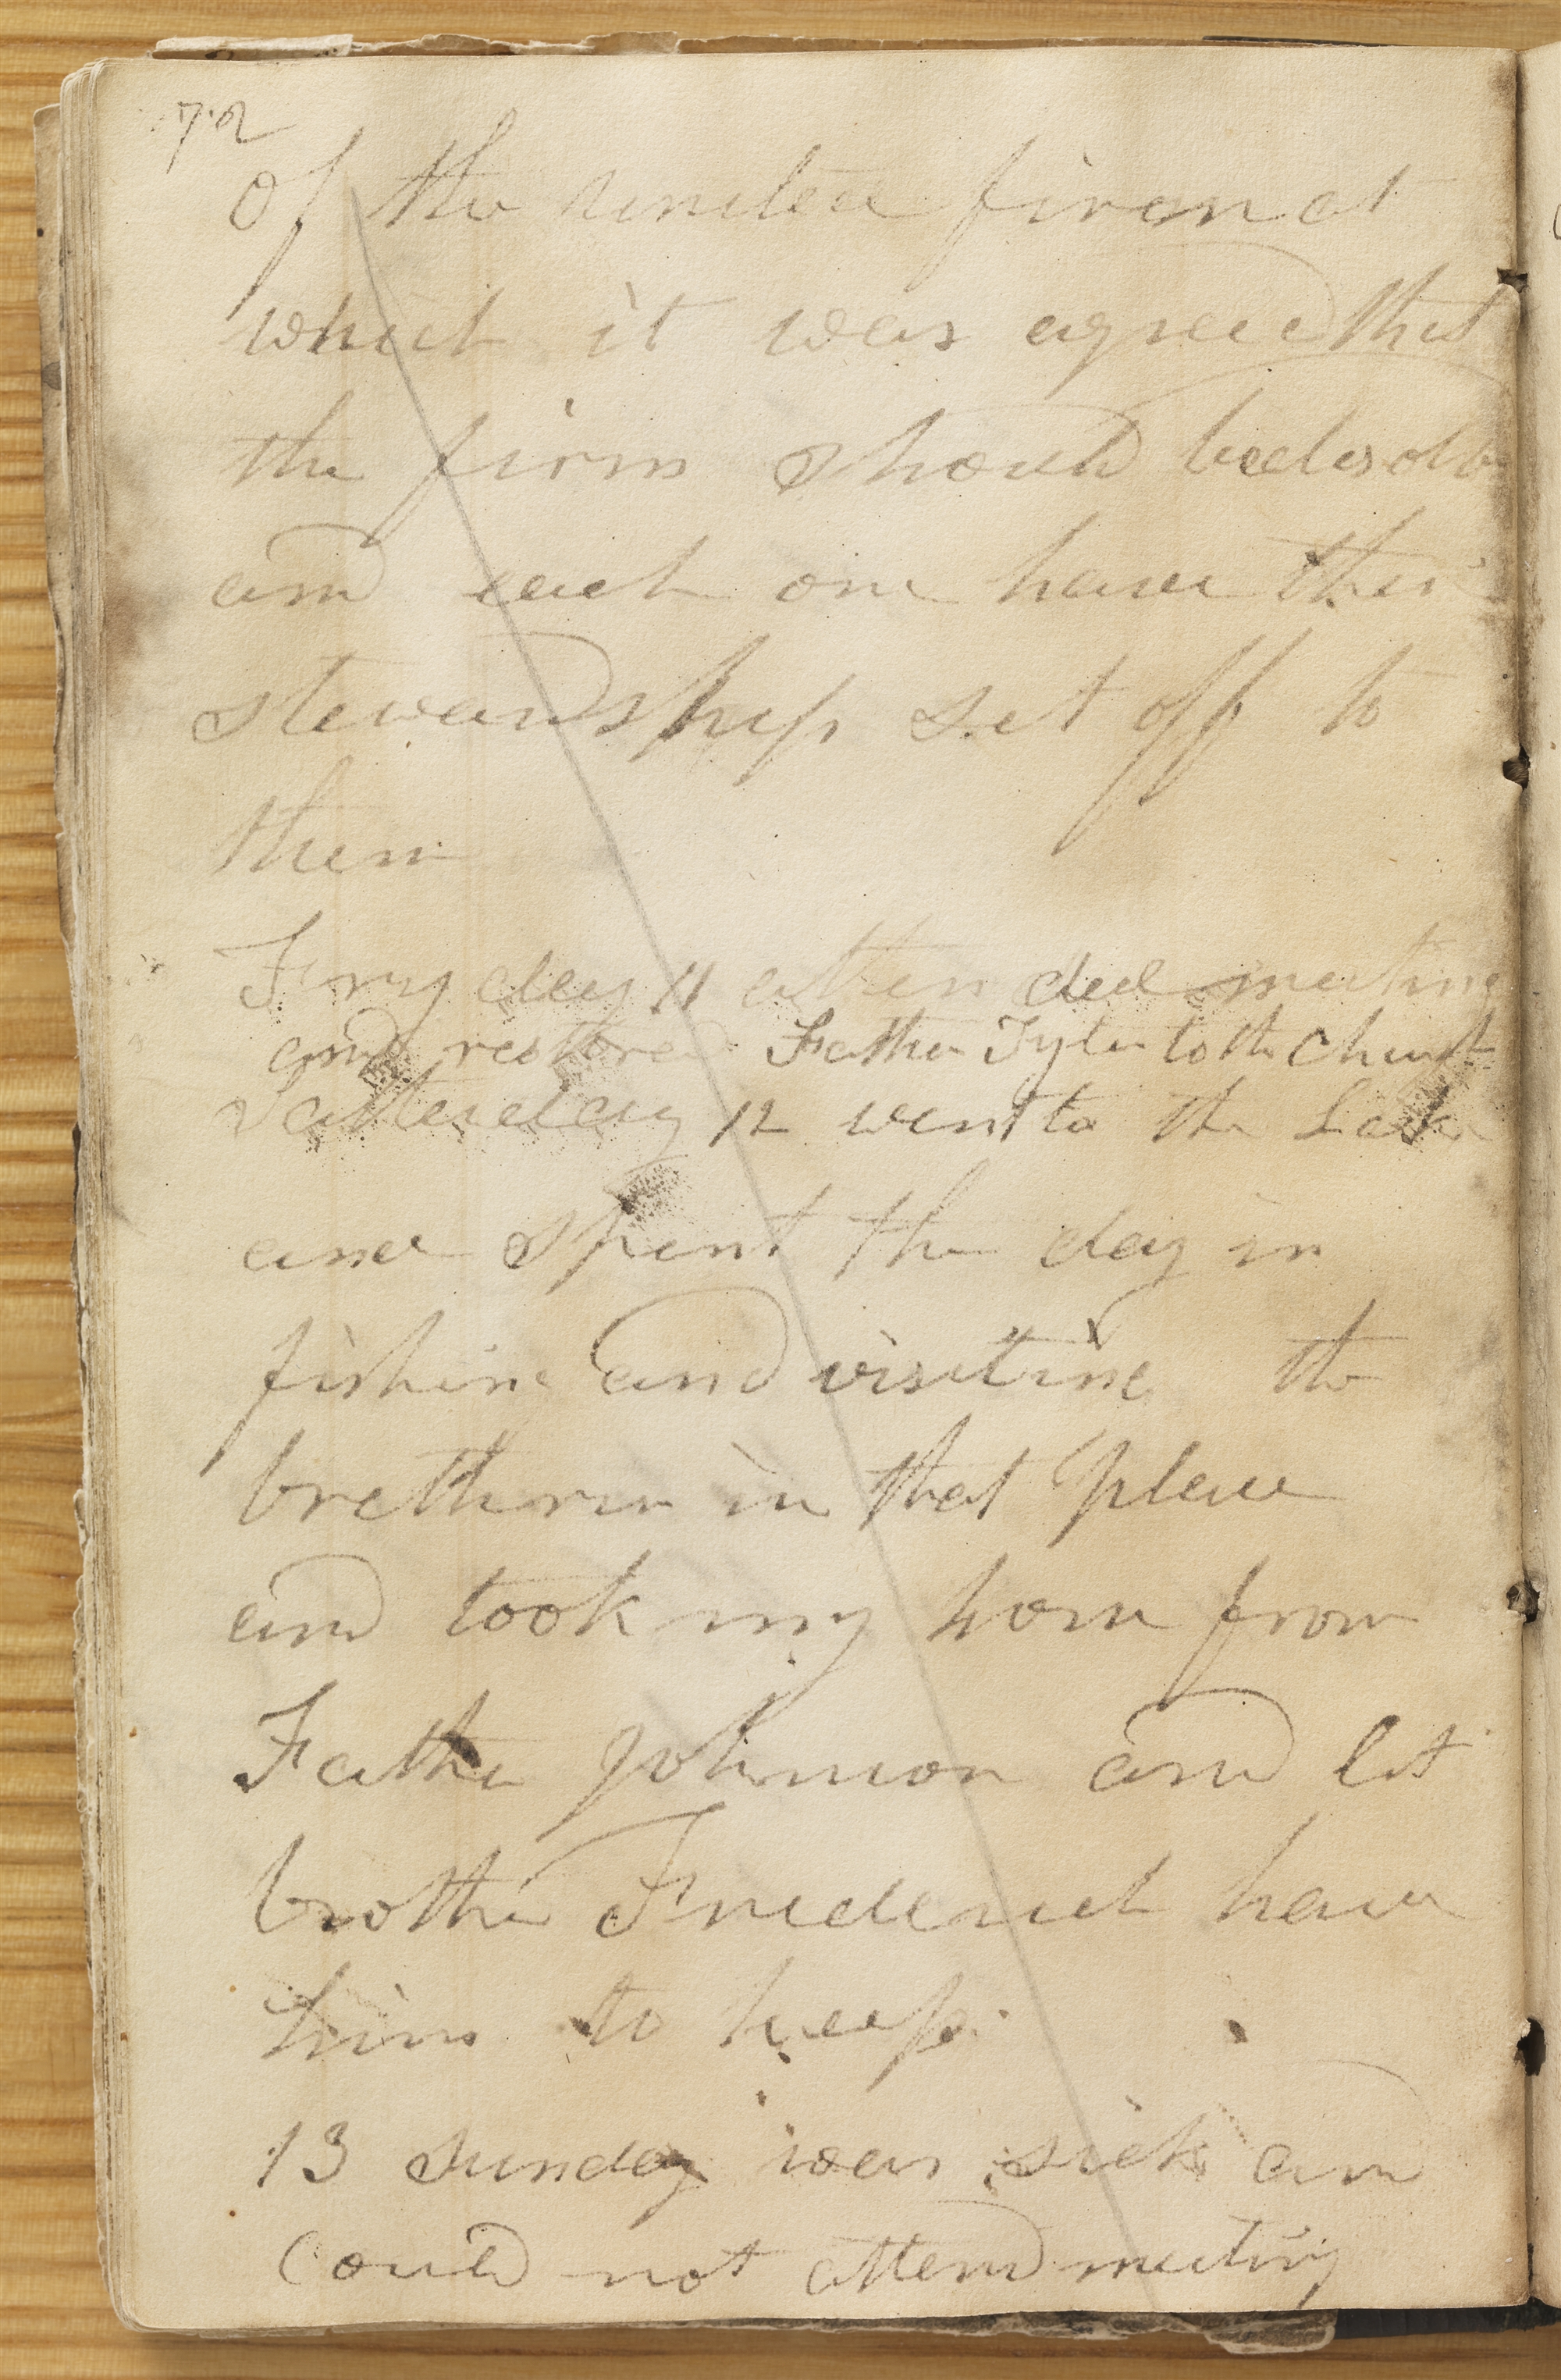 72
of the united firm at
which it was agreed that
the firm should be desolv
and each one have their
stewardship set off to
them
Fryday 11 attended meeting
and restored Father Tyler to the Church
Satterday 12 went to the Lake
and spent the day in
fishing and visiting the
brethren in that place
and took my horse from
Father Johnson and let
brother Frederick have
him to keep.
13 Sunday was sick and
Could not attend meeting